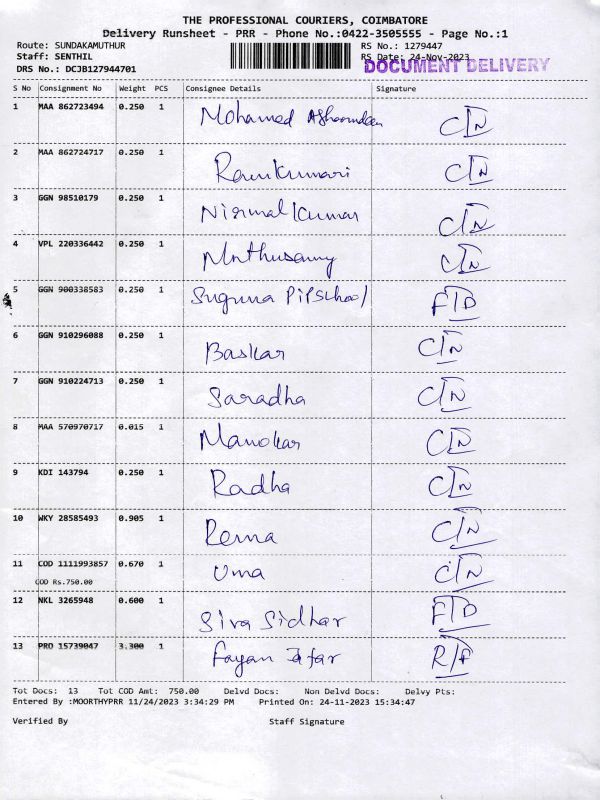 THE PROFESSIONAL COURIERS, COIMBATORE
Delivery Runsheet - PRR - Phone No.:0422-3505555 - Page No.:1
Route: SUNDAKAMUTHUR RS No.: 1279447
Staff: SENTHIL RS Date: 24-Nov-2023
DRS No.: DCJB127944701 DOCUMENT DELIVERY
S No Consignment No Weight PCS Consignee Details Signature
1 MAA 862723494 0.250 1 Mohamed CIN
2 MAA 862724717 0.250 1 Ramkumari CIN
3 GGN 98510179 0.250 1 Nirmal Kumar CIN
4 VPL 220336442 0.250 1 Muthusamy CIN
5 GGN 900338583 0.250 1 Suguna Pip School FTD
6 GGN 910296088 0.250 1 Baskar CIN
7 GGN 910224713 0.250 1 Saradha CIN
8 MAA 570970717 0.015 1 Manokar CIN
9 KDI 143794 0.250 1 Radha CIN
10 WKY 28585493 0.905 1 Rema CIN
11 COD 1111993857 0.670 1 Uma CIN
COD Rs.750.00
12 NKL 3265948 0.600 1 Siva Sidhar FTD
13 PRD 15739047 3.300 1 Fayan Zafar
Tot Docs: 13 Tot COD Amt: 750.00 Delvd Docs: Non Delvd Docs: Delvy Pts:
Entered By :MOORTHYPRR 11/24/2023 3:34:29 PM Printed On: 24-11-2023 15:34:47
Verified By Staff Signature